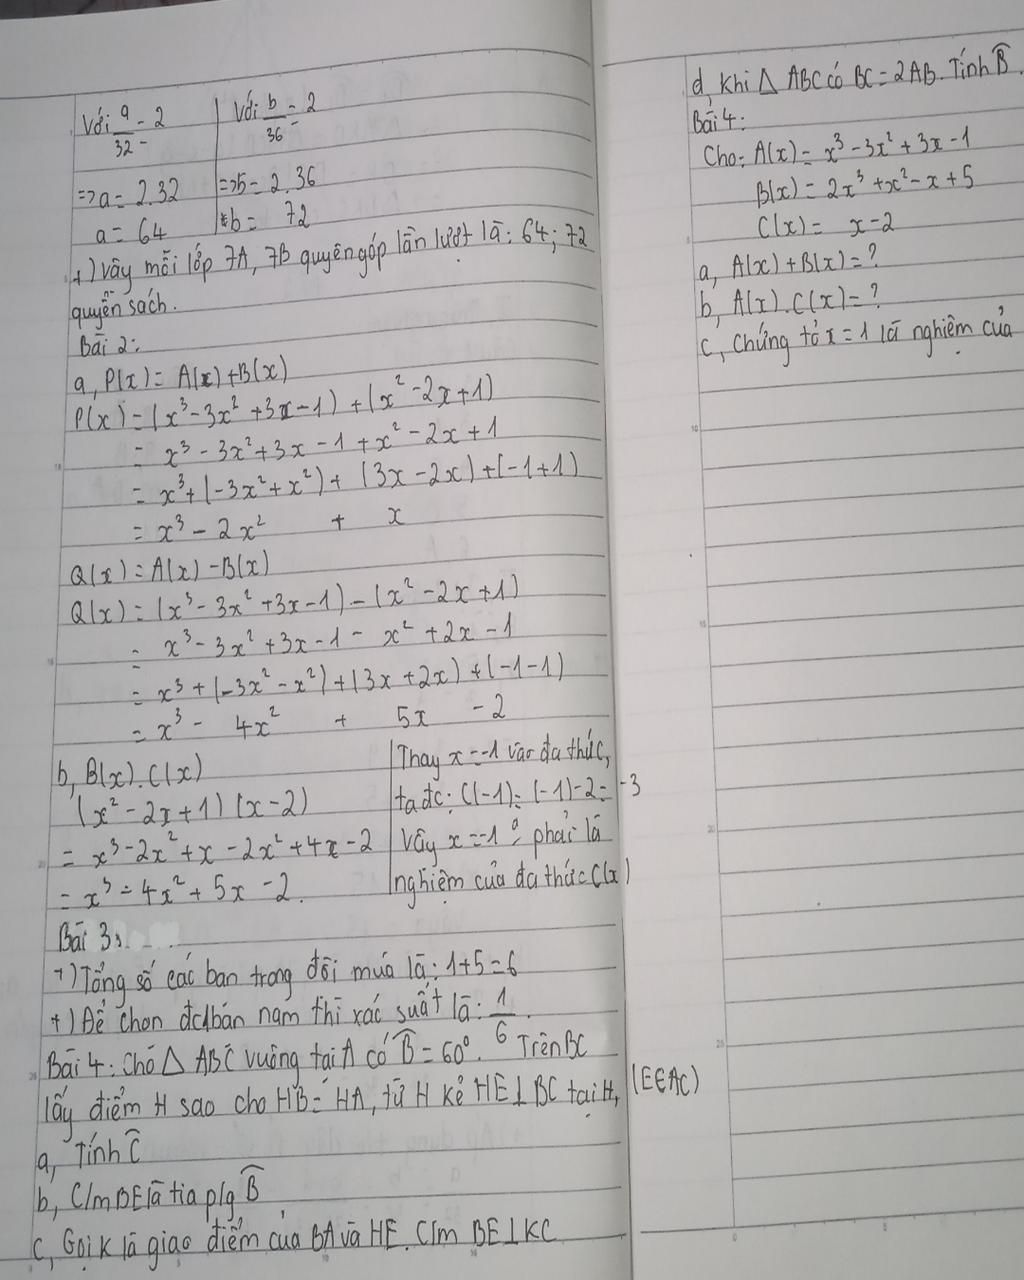 Với a/32 = 2 | Với b/36 = 2
=> a = 2.32 | => b = 2.36
a = 64 | b = 72
+) Vậy mỗi lớp 7A, 7B quyên góp lần lượt là: 64; 72
quyển sách.
Bài 2:
a, P(x) = A(x) + B(x)
P(x) = (x³ - 3x² + 3x - 1) + (x² - 2x + 1)
= x³ - 3x² + 3x - 1 + x² - 2x + 1
= x³ + (-3x² + x²) + (3x - 2x) + (-1 + 1)
= x³ - 2x² + x
Q(x) = A(x) - B(x)
Q(x) = (x³ - 3x² + 3x - 1) - (x² - 2x + 1)
= x³ - 3x² + 3x - 1 - x² + 2x - 1
= x³ + (-3x² - x²) + (3x + 2x) + (-1 - 1)
= x³ - 4x² + 5x - 2
b, B(x).C(x)
(x² - 2x + 1)(x - 2)
= x³ - 2x² + x - 2x² + 4x - 2
= x³ - 4x² + 5x - 2.
Thay x = -1 vào đa thức,
ta đc: C(-1) = (-1) - 2 = -3
Vậy x = -1 phải là
nghiệm của đa thức C(x)
Bài 3:
+) Tổng số các bạn trong đội múa là: 1+5=6
+) Để chọn đc bạn nam thì xác suất là: 1/6.
Bài 4: Cho △ ABC vuông tại A có B̂ = 60°. Trên BC
lấy điểm H sao cho HB = HA, từ H kẻ HE ⊥ BC tại H, (E∈AC)
a, Tính Ĉ
b, C/m BE là tia p/g B̂
c, Gọi K là giao điểm của BA và HE. C/m BE ⊥ KC
d, Khi △ ABC có BC = 2AB. Tính B̂.
Bài 4:
Cho: A(x) = x³ - 3x² + 3x - 1
B(x) = 2x³ + x² - x + 5
C(x) = x - 2
a, A(x) + B(x) = ?
b, A(x).C(x) = ?
c, Chứng tỏ x = 1 là nghiệm của